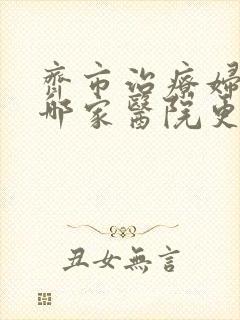 齊市治療婦
哪家醫院更
丑女無言